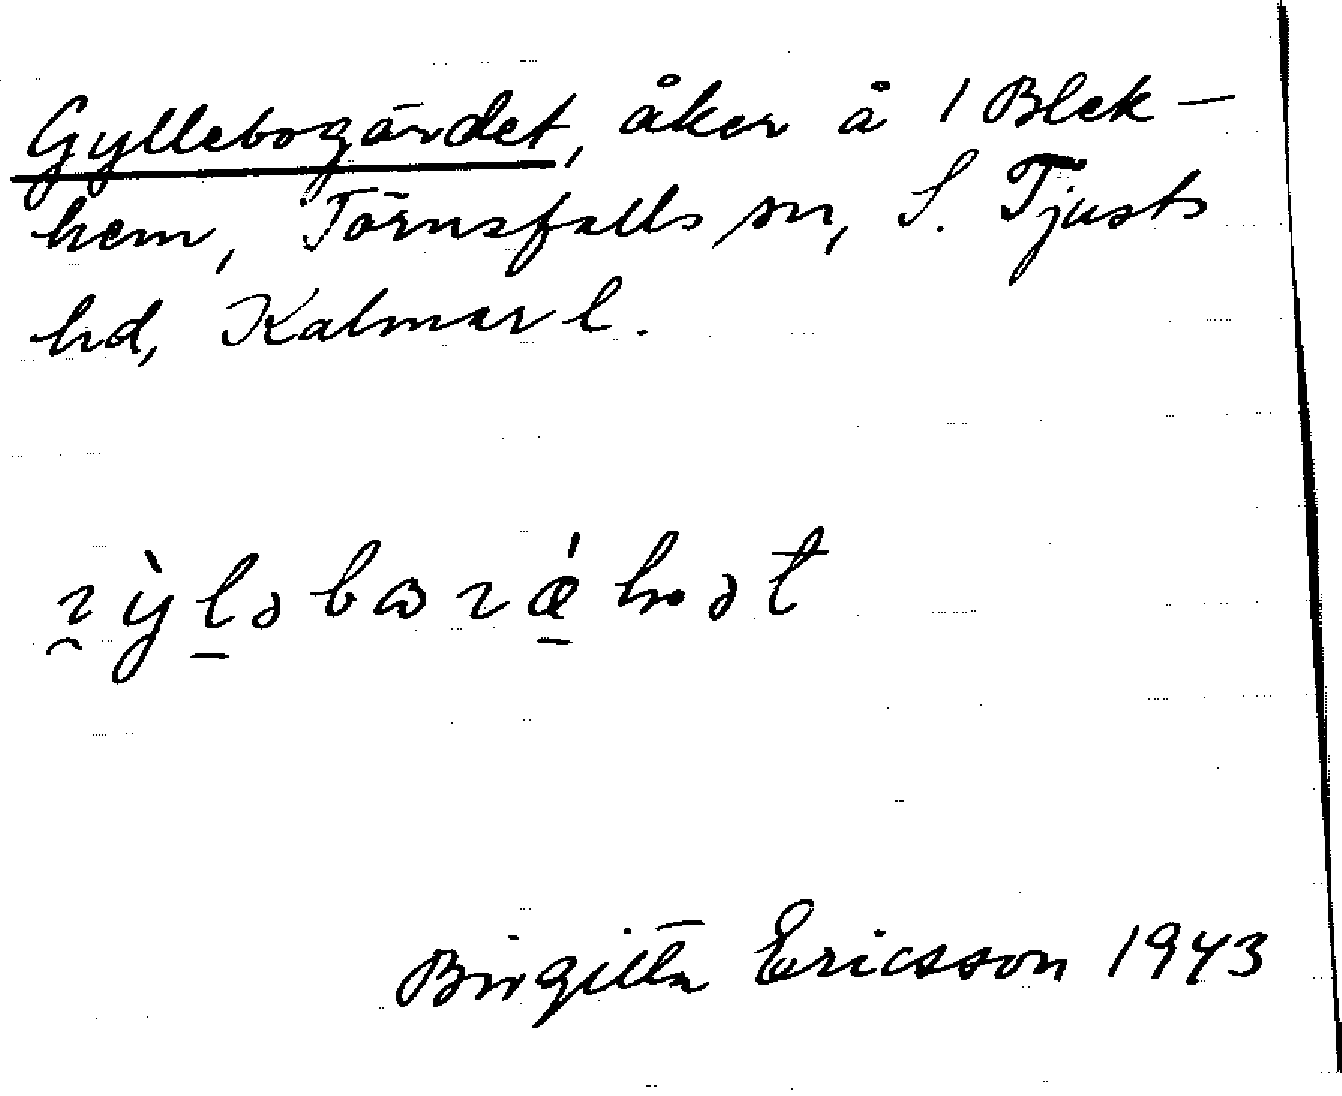 Gyllebogärdet, åker å 1 Blek-
hem, Törnsfalls sn, S. Tjusts
hd, Kalmar l.
Birgitta Ericsson 1943